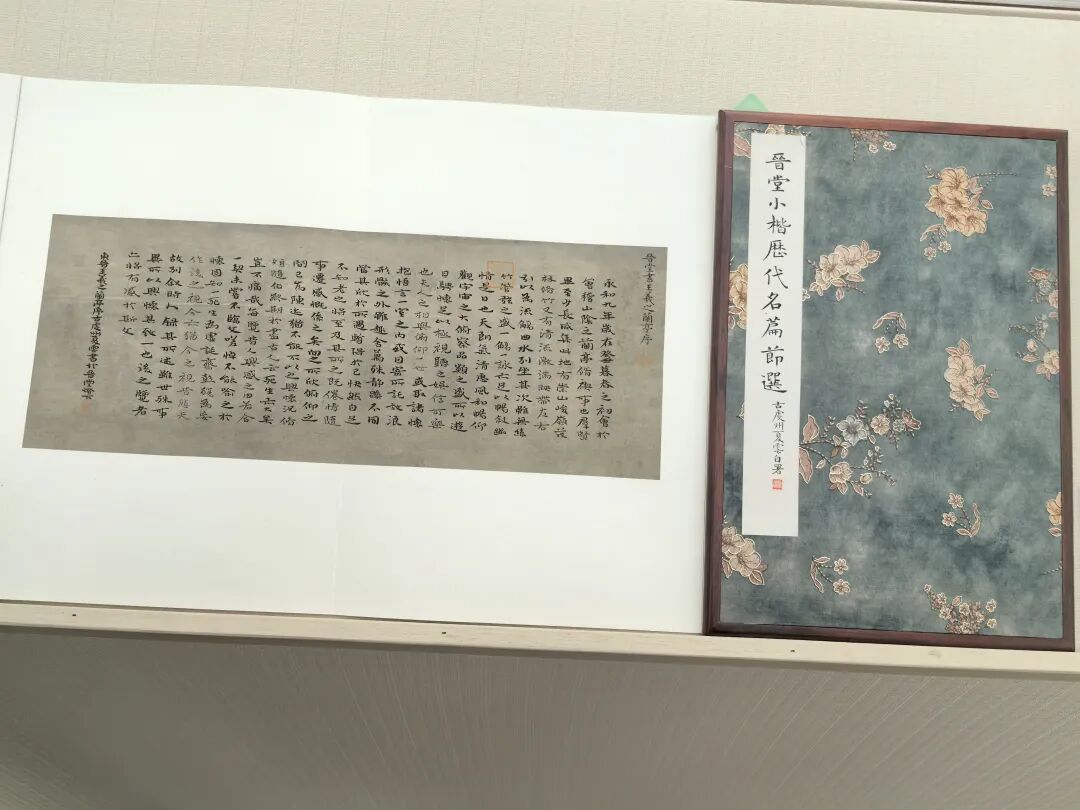 晉堂小楷歷代名篇節選
古虔州夏雲自署
晉堂書王羲之蘭亭序
永和九年歲在癸丑暮春之初會於
會稽山陰之蘭亭脩禊事也羣賢
畢至少長咸集此地有崇山峻嶺茂
林脩竹又有清流激湍暎帶左右
引以為流觴曲水列坐其次雖無絲
竹管弦之盛一觴一詠亦足以暢敘幽
情是日也天朗氣清惠風和暢仰
觀宇宙之大俯察品類之盛所以遊
目騁懷足以極視聽之娛信可樂
也夫人之相與俯仰一世或取諸懷
抱悟言一室之內或因寄所託放浪
形骸之外雖趣舍萬殊靜躁不同
當其欣於所遇暫得於己快然自足
不知老之將至及其所之既倦情隨
事遷感慨係之矣向之所欣俯仰之
間已為陳迹猶不能不以之興懷況脩
短隨化終期於盡古人云死生亦大矣
豈不痛哉每覽昔人興感之由若合
一契未嘗不臨文嗟悼不能喻之於
懷固知一死生為虛誕齊彭殤為妄
作後之視今亦猶今之視昔悲夫
故列敘時人錄其所述雖世殊事
異所以興懷其致一也後之覽者
亦將有感於斯文
東晉王羲之蘭亭序古虔州夏雲書於晉堂